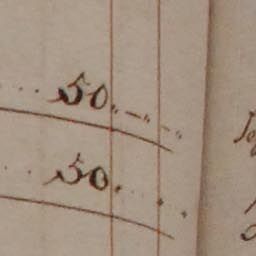 50. - -
50. . .